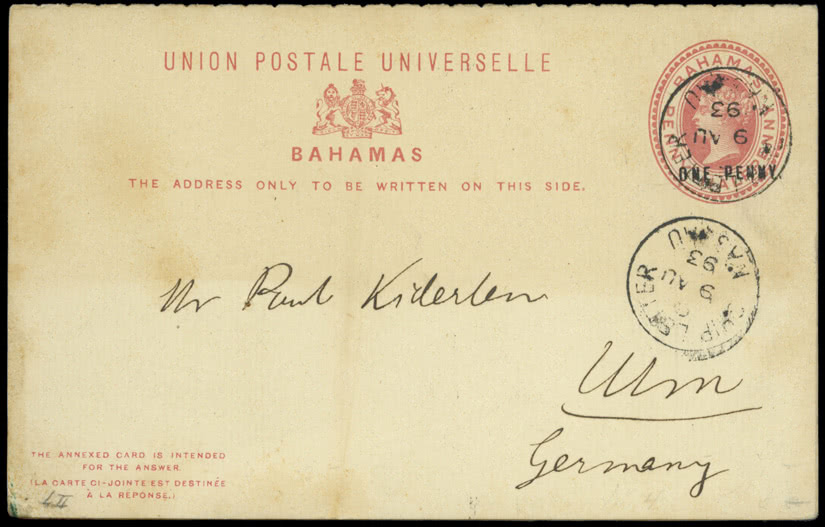 UNION POSTALE UNIVERSELLE
BAHAMAS
THE ADDRESS ONLY TO BE WRITTEN ON THIS SIDE.
BAHAMAS
PENNY
ONE PENNY.
9 AU
93
SHIP LETTER
NASSAU
9 AU
93
Mr Paul Kiderlen
Ulm
Germany
THE ANNEXED CARD IS INTENDED
FOR THE ANSWER.
(LA CARTE CI-JOINTE EST DESTINÉE
À LA RÉPONSE.)